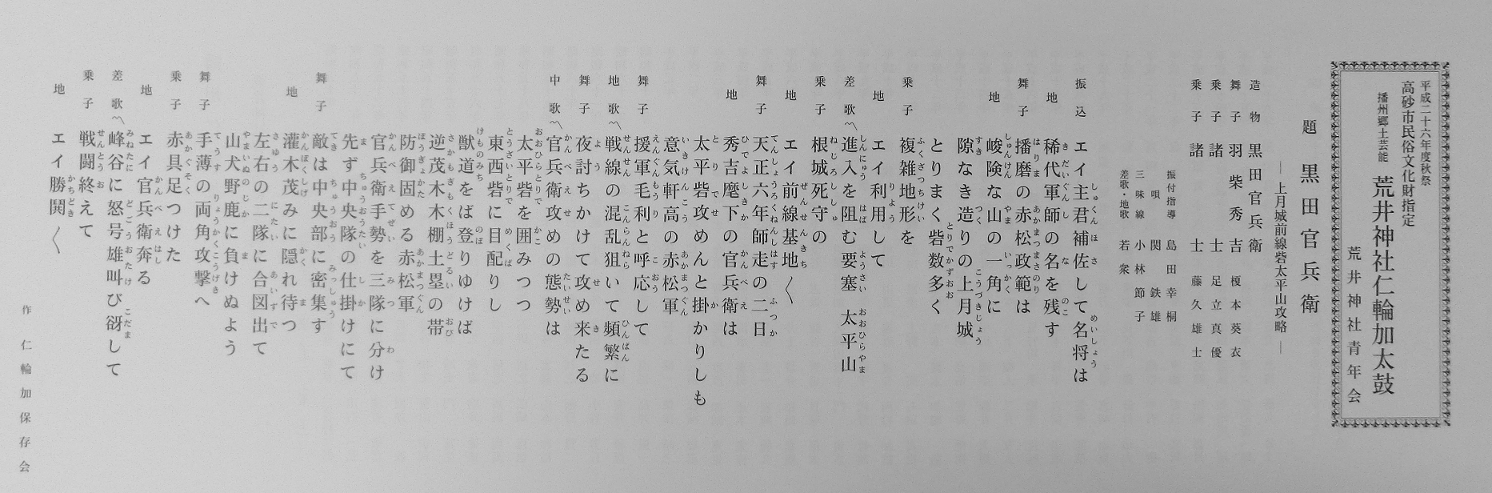 平成二十六年度秋祭
高砂市民俗文化財指定
播州郷土芸能 荒井神社仁輪加太鼓
荒井神社青年会
題 黒田官兵衛
―上月城前線砦太平山攻略―
造物 黒田官兵衛
舞子 羽柴秀吉 榎本葵衣
乗子 諸士 足立真優
乗子 諸士 藤久雄士
振付指導 島田幸桐
唄 関鉄雄
三味線 小林節子
差歌・地歌 若衆
振込 エイ主君補佐して名将は
地 稀代軍師の名を残す
舞子 播磨の赤松政範は
地 峻険な山の一角に
隙なき造りの上月城
とりまく砦数多く
乗子 複雑地形を
地 エイ利用して
差歌〽 進入を阻む要塞 太平山
乗子 根城死守の
地 エイ前線基地〱
舞子 天正六年師走の二日
地 秀吉麾下の官兵衛は
太平砦攻めんと掛かりしも
意気軒高の赤松軍
舞子 援軍毛利と呼応して
地歌〽 戦線の混乱狙いて頻繁に
舞子 夜討ちかけて攻めて来たる
中歌〽 官兵衛攻めの態勢は
太平砦を囲みつつ
東西砦に目配りし
獣道をば登りゆけば
逆茂木木棚土塁の帯
防御固める赤松軍
官兵衛手勢を三隊に分け
先ず中央隊の仕掛けにて
舞子 敵は中央部に密集す
地 灌木茂みに隠れ待つ
左右の二隊に合図出て
山犬野鹿に負けぬよう
舞子 手薄の両角攻撃へ
乗子 赤具足つけた
地 エイ官兵衛奔る
差歌〽 峰谷に怒号雄叫び谺して
乗子 戦闘終えて
地 エイ勝鬨〱
作 仁輪加保存会